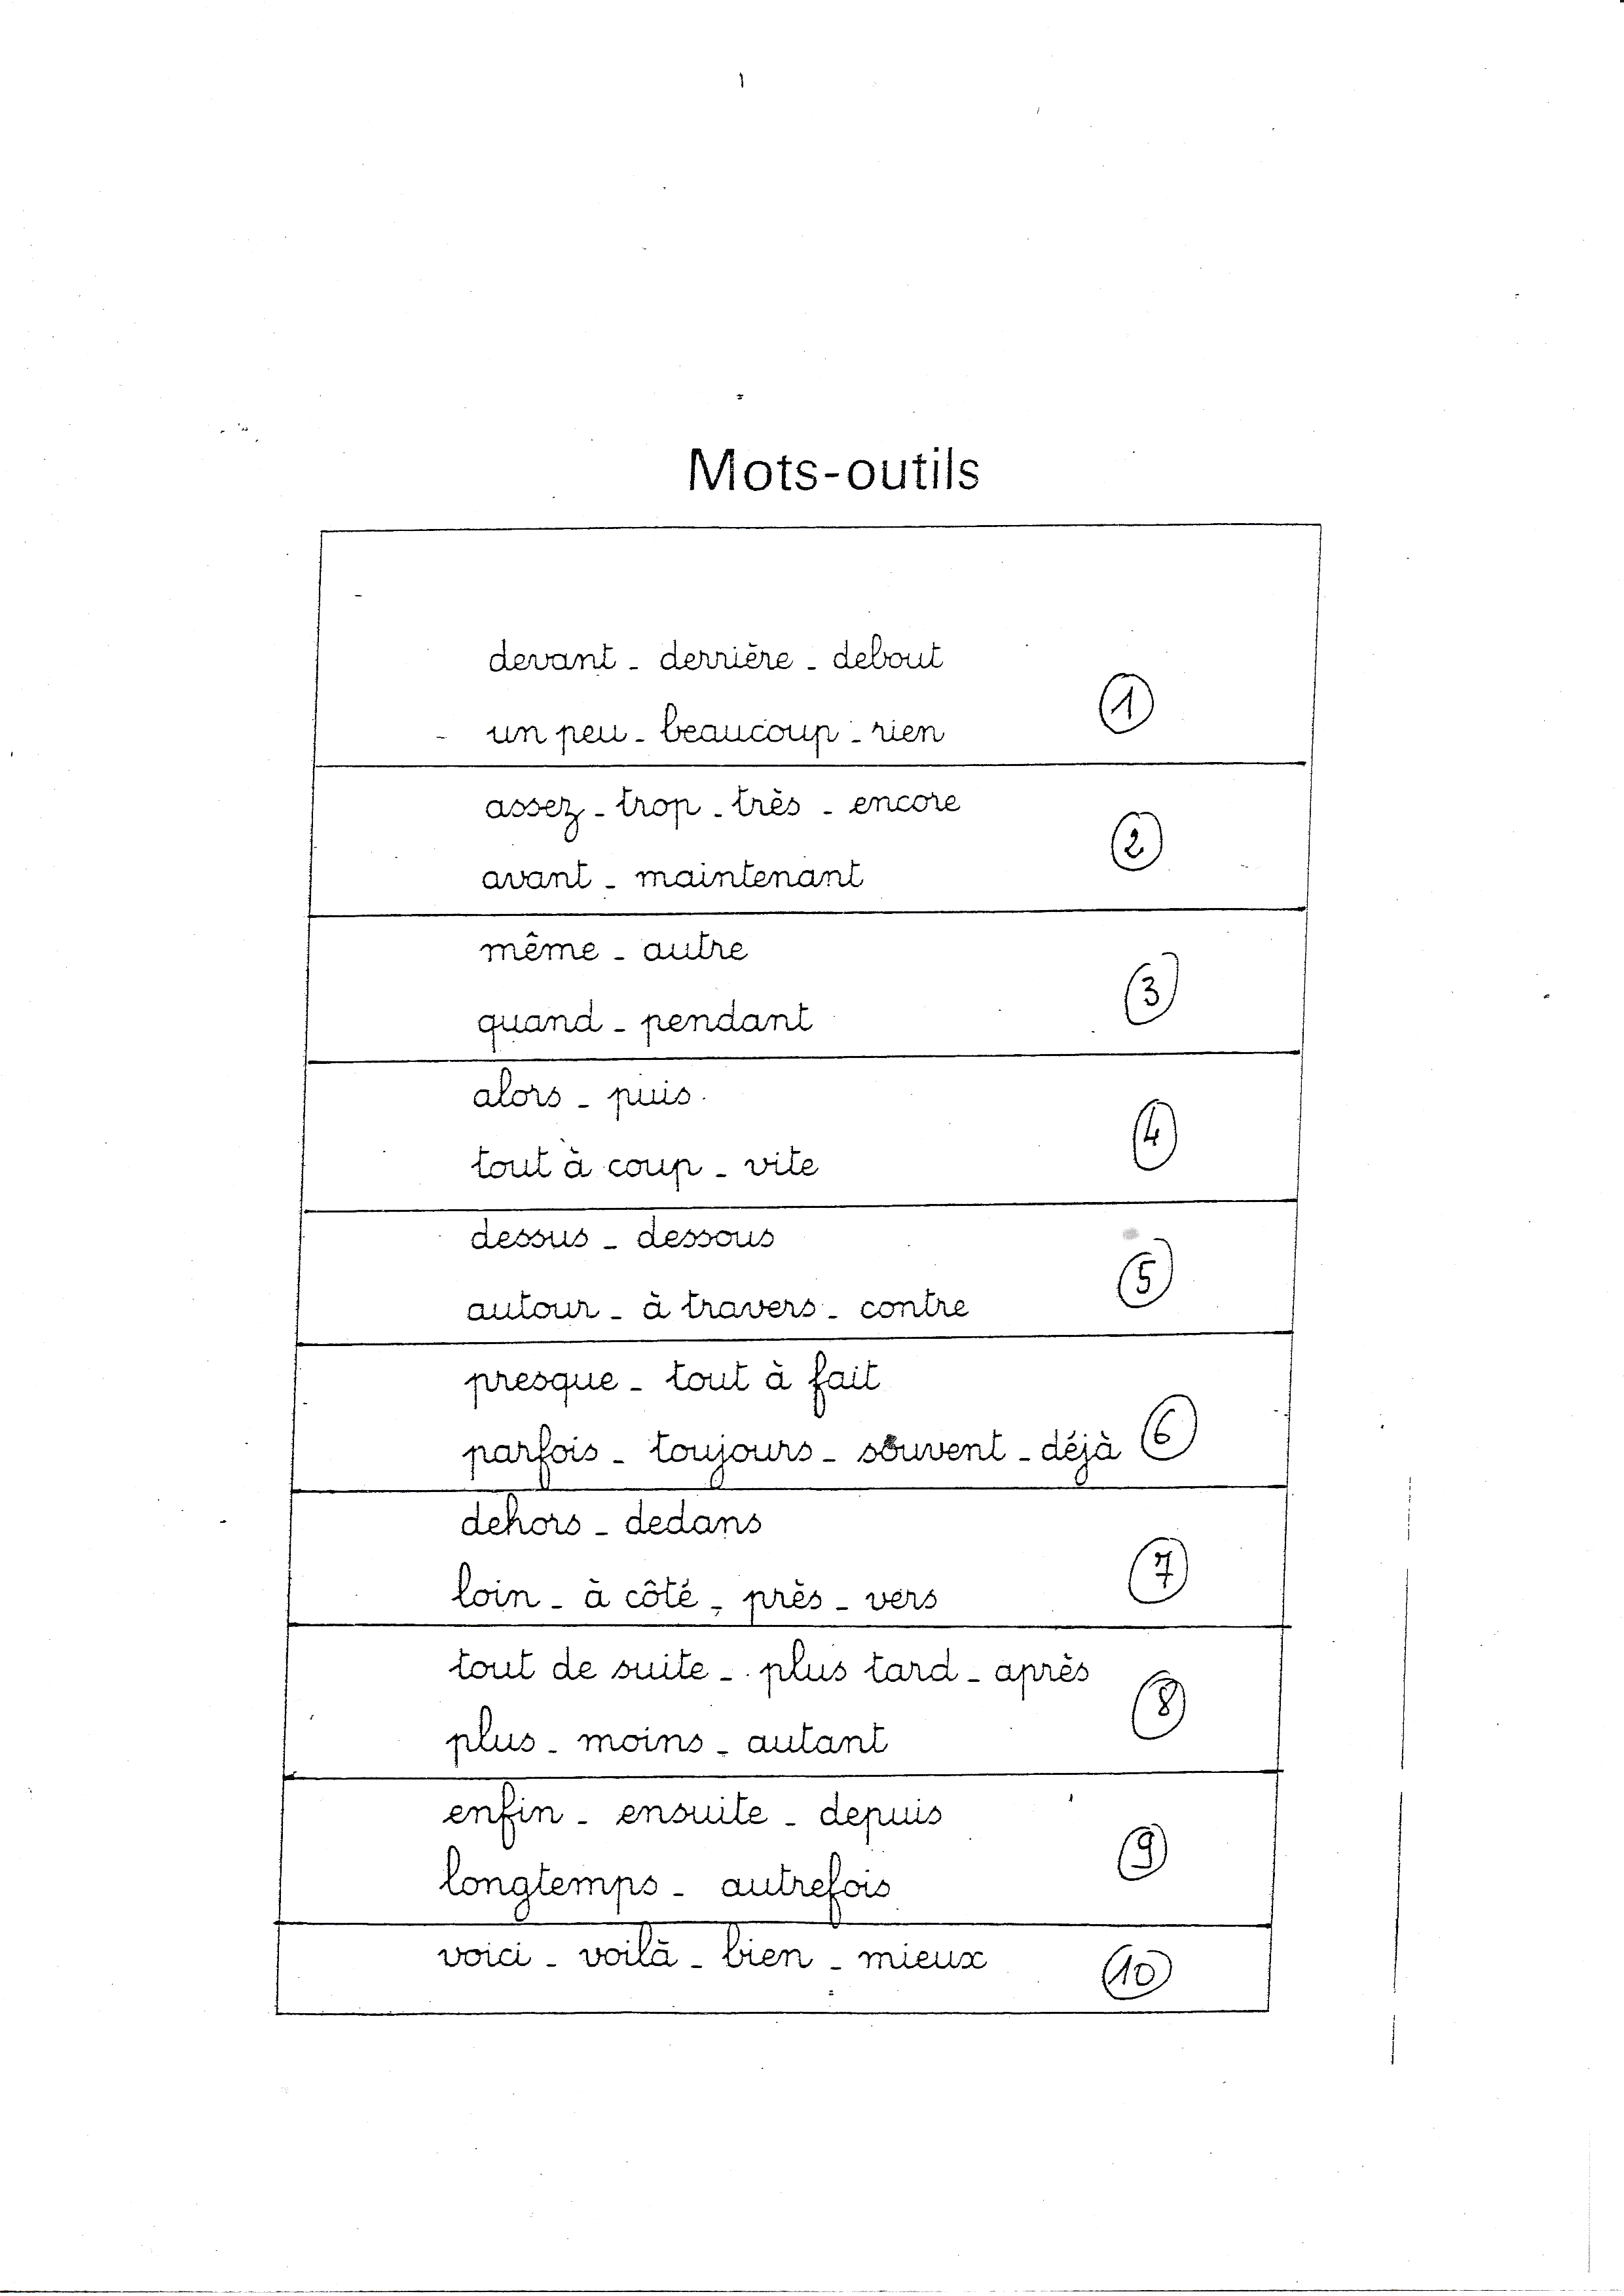 Mots-outils
devant - derrière - debout
1
un peu - beaucoup - rien
assez - trop - très - encore
2
avant - maintenant
même - autre
3
quand - pendant
alors - puis
4
tout à coup - vite
dessus - dessous
5
autour - à travers - contre
presque - tout à fait
parfois - toujours - souvent - déjà 6
dehors - dedans
7
loin - à côté - près - vers
tout de suite - plus tard - après
8
plus - moins - autant
enfin - ensuite - depuis
9
longtemps - autrefois
voici - voilà - bien - mieux 10